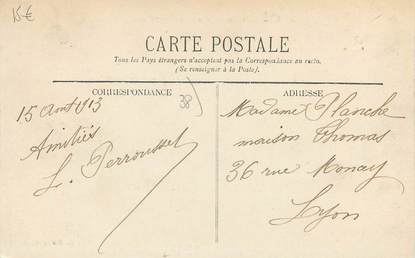 15€
CARTE POSTALE
Tous les Pays étrangers n'acceptent pas la Correspondance au recto.
(Se renseigner à la Poste).
CORRESPONDANCE
38)
15 Aout 1913
Amitiés
L. Perroussel
ADRESSE
Madame Planche
maison Thomas
36 rue Moncey
Lyon